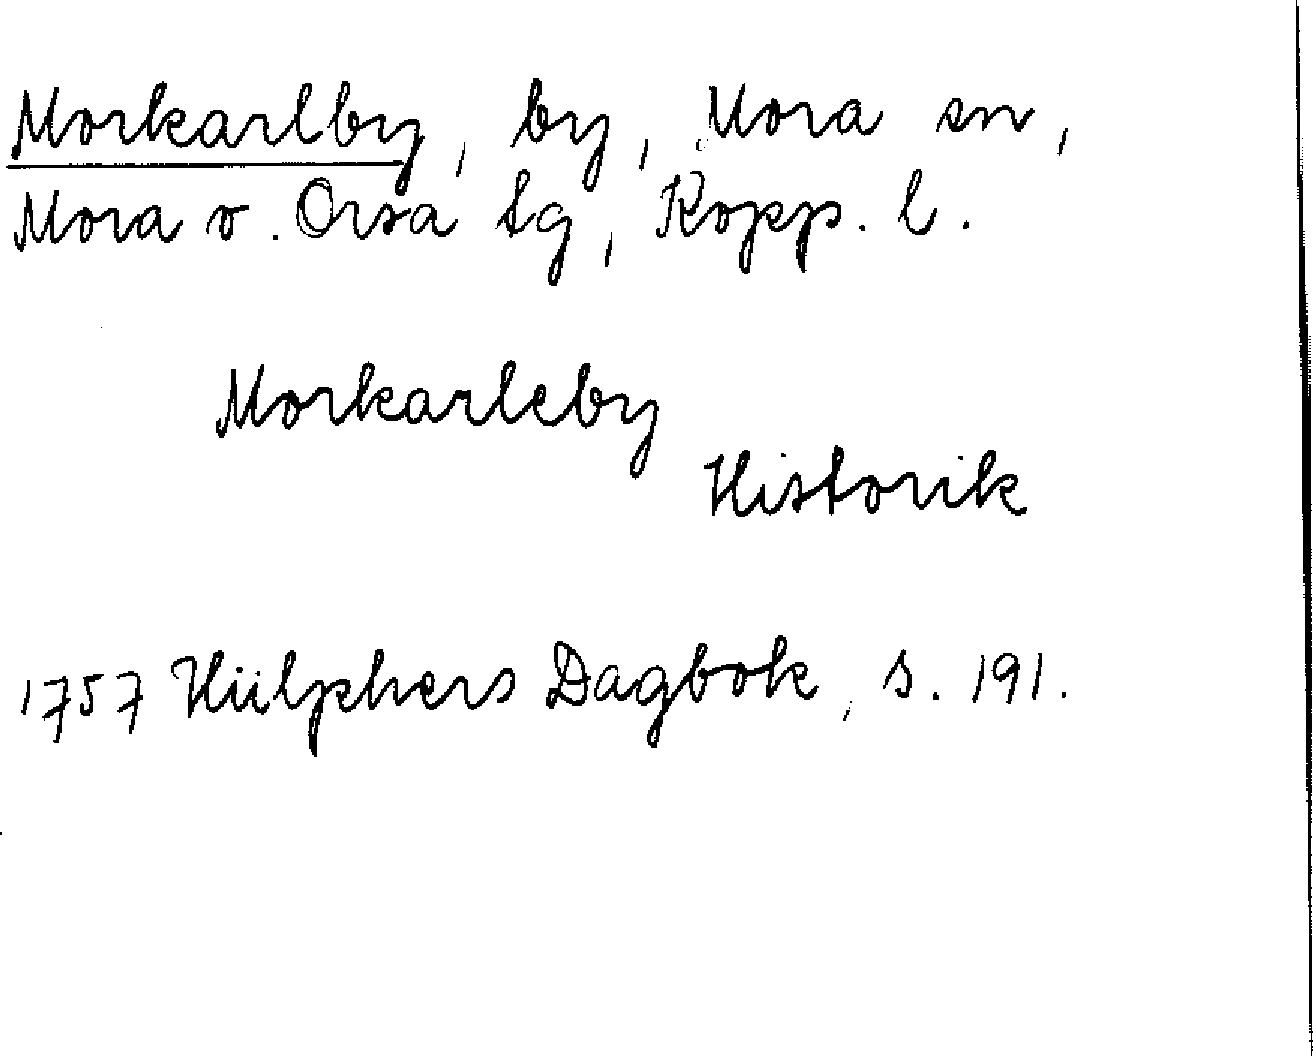 Morkarlby, by, Mora sn,
Mora o. Orsa tg, Kopp. l.
Morkarleby
Historik
1757 Hülphers Dagbok, s. 191.